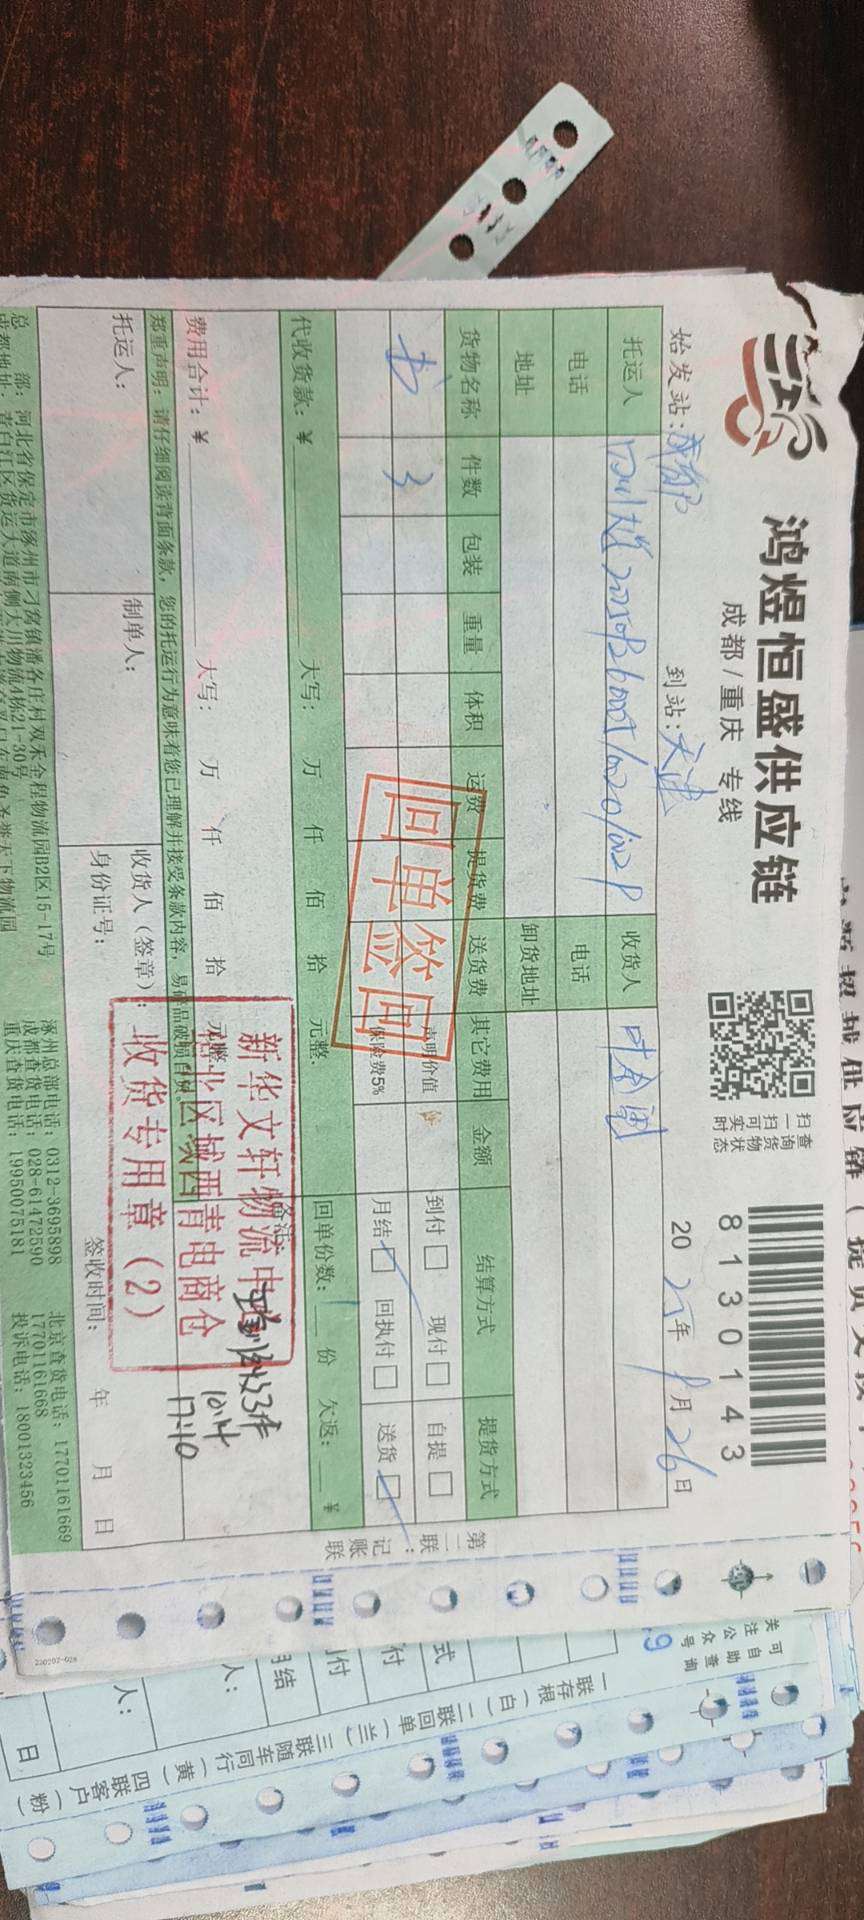 鸿煜恒盛供应链
成都/重庆 专线
扫一扫可实时
查询货物状态
8130143
始发站:成都
到站:天津
20 25年 月26日
托运人
收货人
电话
电话
地址
卸货地址
货物名称 件数 包装 重量 体积 运费 提货费 送货费 其它费用 金额 结算方式 提货方式
书 3
声明价值
保险费5%
到付□ 现付□ 自提□
月结□ 回执付□ 送货□
回单签回
代收货款:¥ 大写: 万 仟 佰 拾 元整.
回单份数: 1 份 欠返: ¥
费用合计:¥ 大写: 万 仟 佰 拾
新华文轩物流中
华北区域西青电商仓
收货专用章(2)
10.14
17:10
郑重声明:请仔细阅读背面条款,您的托运行为意味着您已理解并接受条款内容,易碎品破损自负.
托运人:
制单人:
收货人(签章):
身份证号:
签收时间: 年 月 日
总 部:河北省保定市涿州市刁窝镇潘各庄村双禾全程物流园D2区15-17号
成都地址:青白江区货运大道南侧大川物流4栋21-30号
涿州总部电话:0312-3695898
成都查货电话:028-61472590
重庆查货电话:19950075181
北京查货电话:17701161669
17701161668
投诉电话:18001323456
第二联:记账联
220202-028
关注公众号
可自助查询
一联存根(白)二联回单(兰)三联随车同行(黄)四联客户(粉)
人:
人:
日